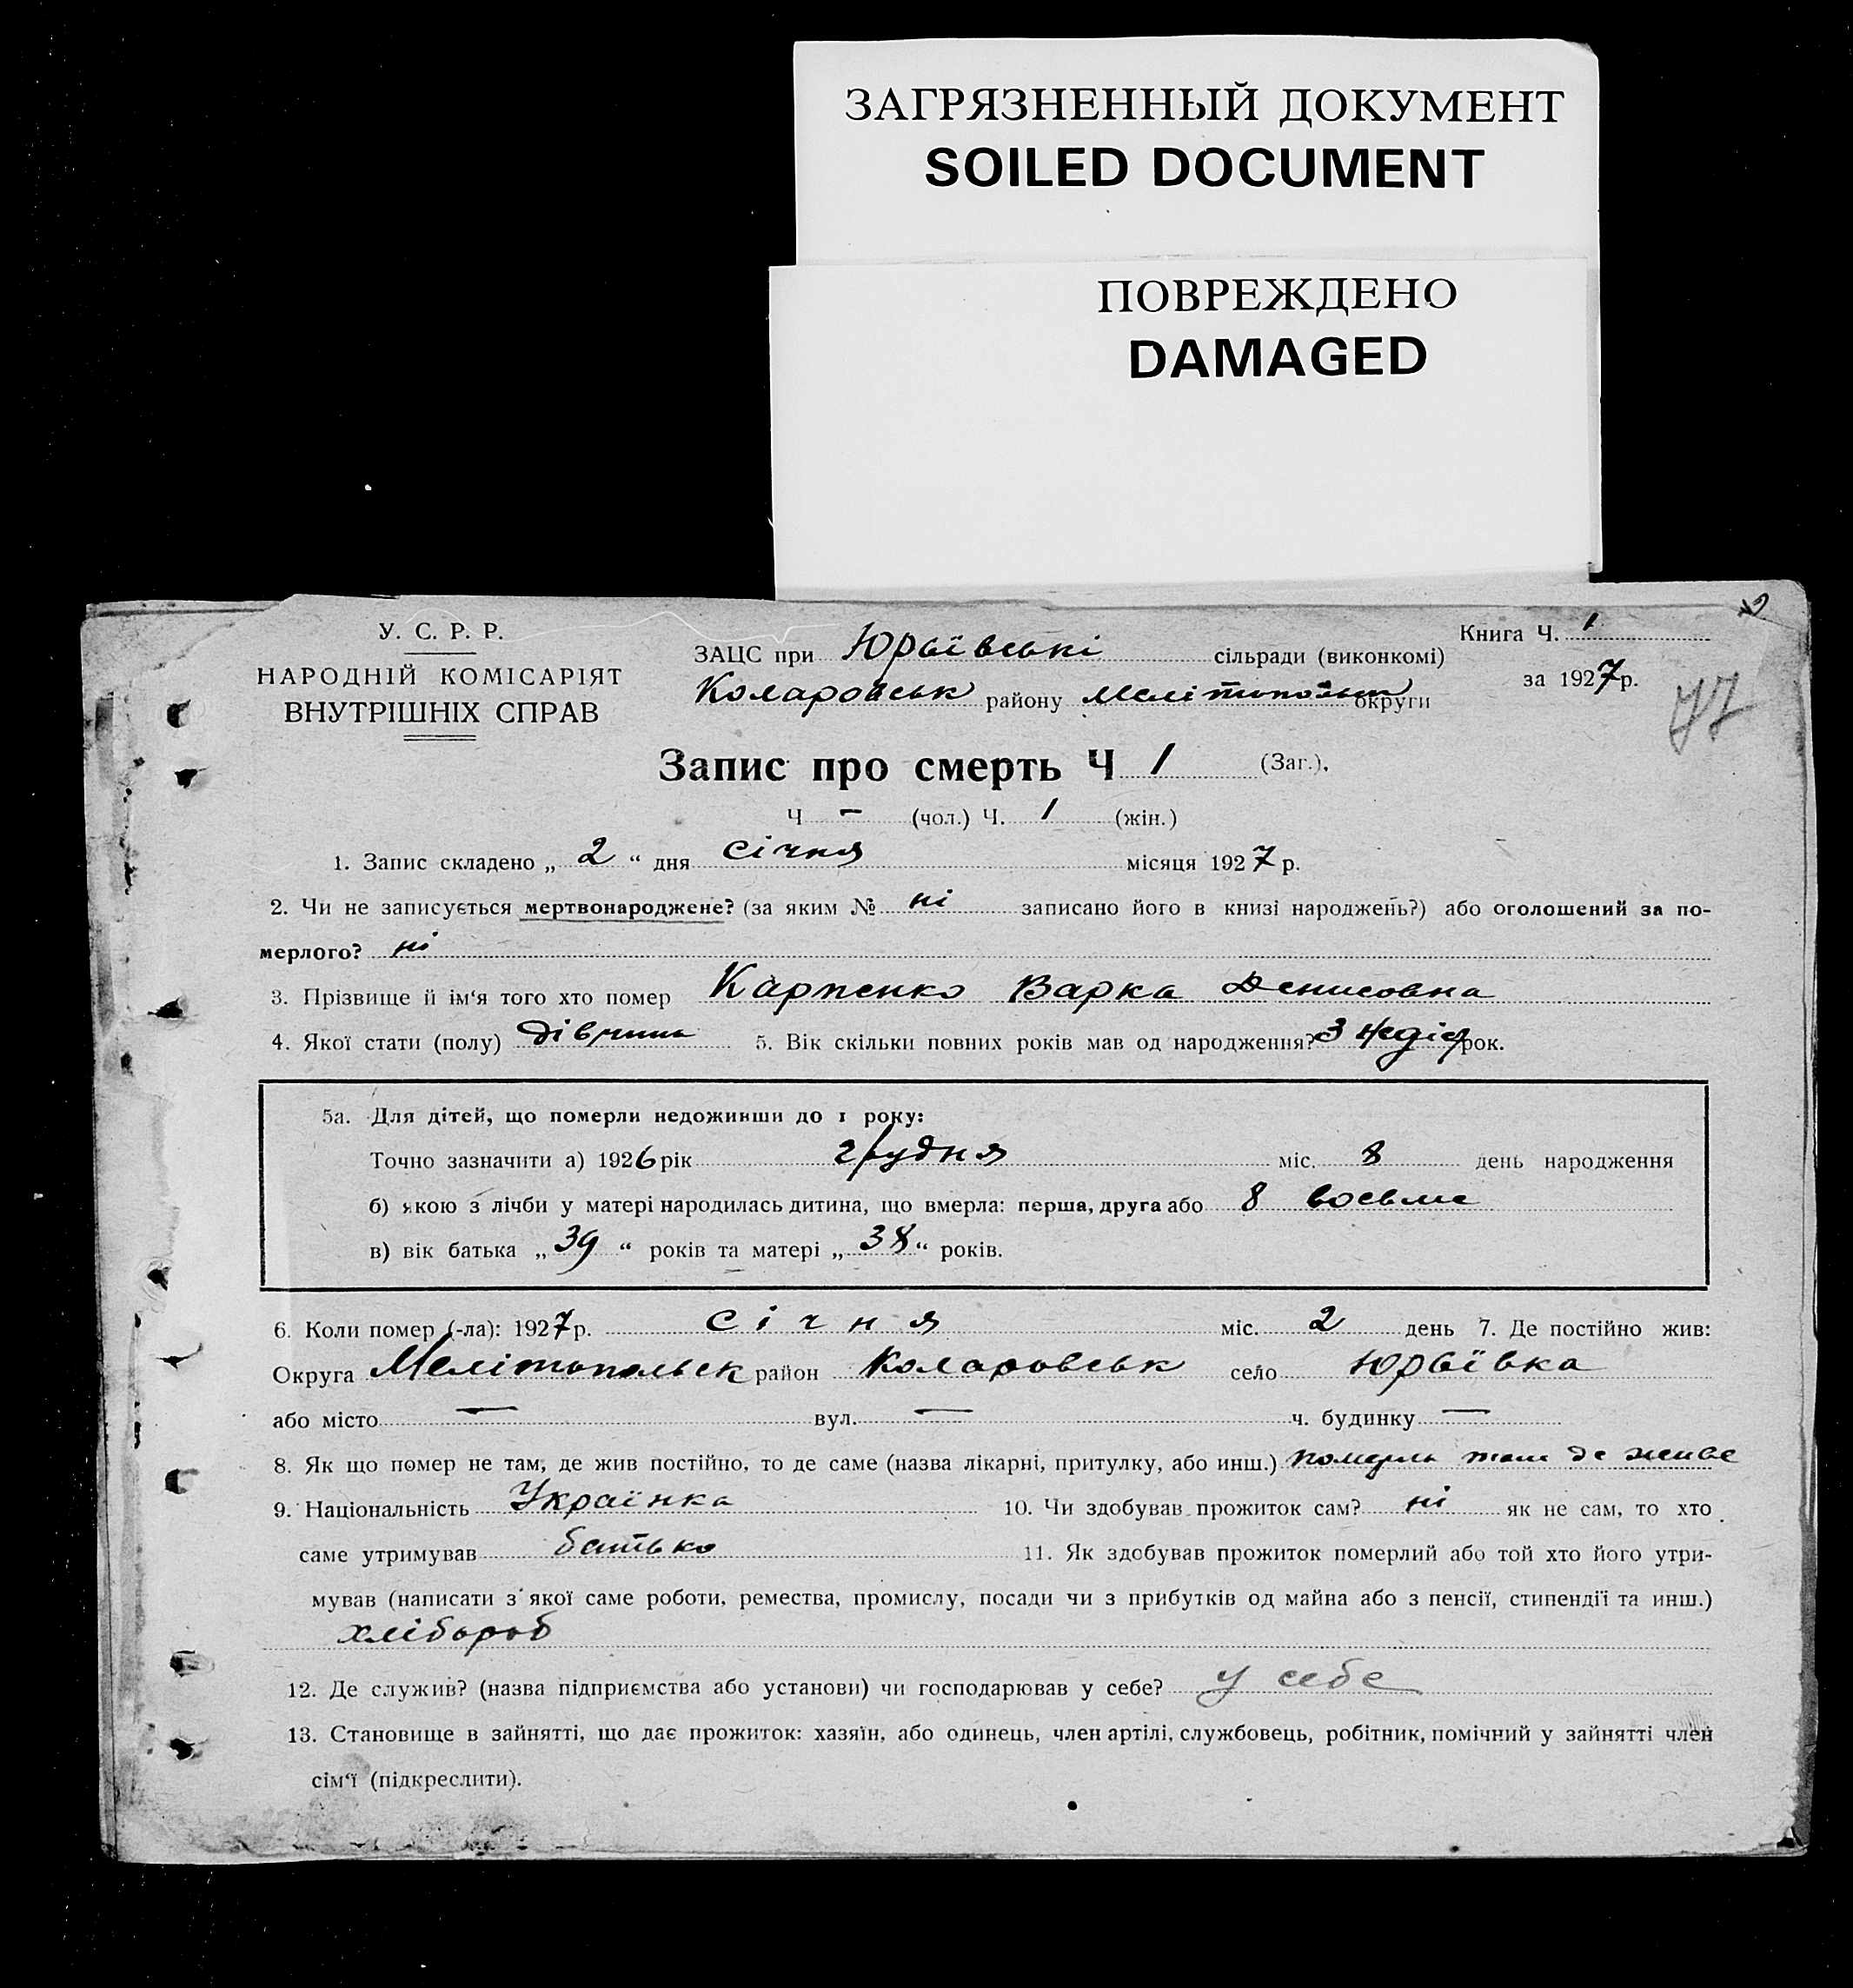 ЗАГРЯЗНЕННЫЙ ДОКУМЕНТ
SOILED DOCUMENT
ПОВРЕЖДЕНО
DAMAGED
У. С. Р. Р.
НАРОДНІЙ КОМІСАРІЯТ
ВНУТРІШНІХ СПРАВ
Книга Ч. 1
ЗАЦС при Юрьївські сільради (виконкомі)
за 1927 р.
Коларовськ району округи
77
Запис про смерть Ч 1 (Заг.).
Ч – (чол.) Ч. 1 (жін.)
1. Запис складено „ 2 “ дня січня місяця 1927 р.
2. Чи не записується мертвонароджене? (за яким № ні записано його в книзі народжень?) або оголошений за по-
мерлого? ні
3. Прізвище й ім‘я того хто помер Карпенко Варка Денисовна
4. Якої стати (полу) дівчина 5. Вік скільки повних років мав од народження? 3 рок.
5а. Для дітей, що померли недоживши до 1 року:
Точно зазначити а) 1926 рік грудня міс. 8 день народження
б) якою з лічби у матері народилась дитина, що вмерла: перша, друга або 8 восьме
в) вік батька „ 39 “ років та матері „ 38 “ років.
6. Коли помер (-ла): 1927 р. січня міс. 2 день 7. Де постійно жив:
Округа Мелітопольск район Коларовськ село Юрьївка
або місто — вул. — ч. будинку —
8. Як що помер не там, де жив постійно, то де саме (назва лікарні, притулку, або инш.) там де живе
9. Національність Українка 10. Чи здобував прожиток сам? ні як не сам, то хто
саме утримував батько 11. Як здобував прожиток померлий або той хто його утри-
мував (написати з якої саме роботи, ремества, промислу, посади чи з прибутків од майна або з пенсії, стипендії та инш.)
хлібороб
12. Де служив? (назва підприємства або установи) чи господарював у себе? у себе
13. Становище в зайнятті, що дає прожиток: хазяїн, або одинець, член артілі, службовець, робітник, помічний у зайнятті член
сім‘ї (підкреслити).